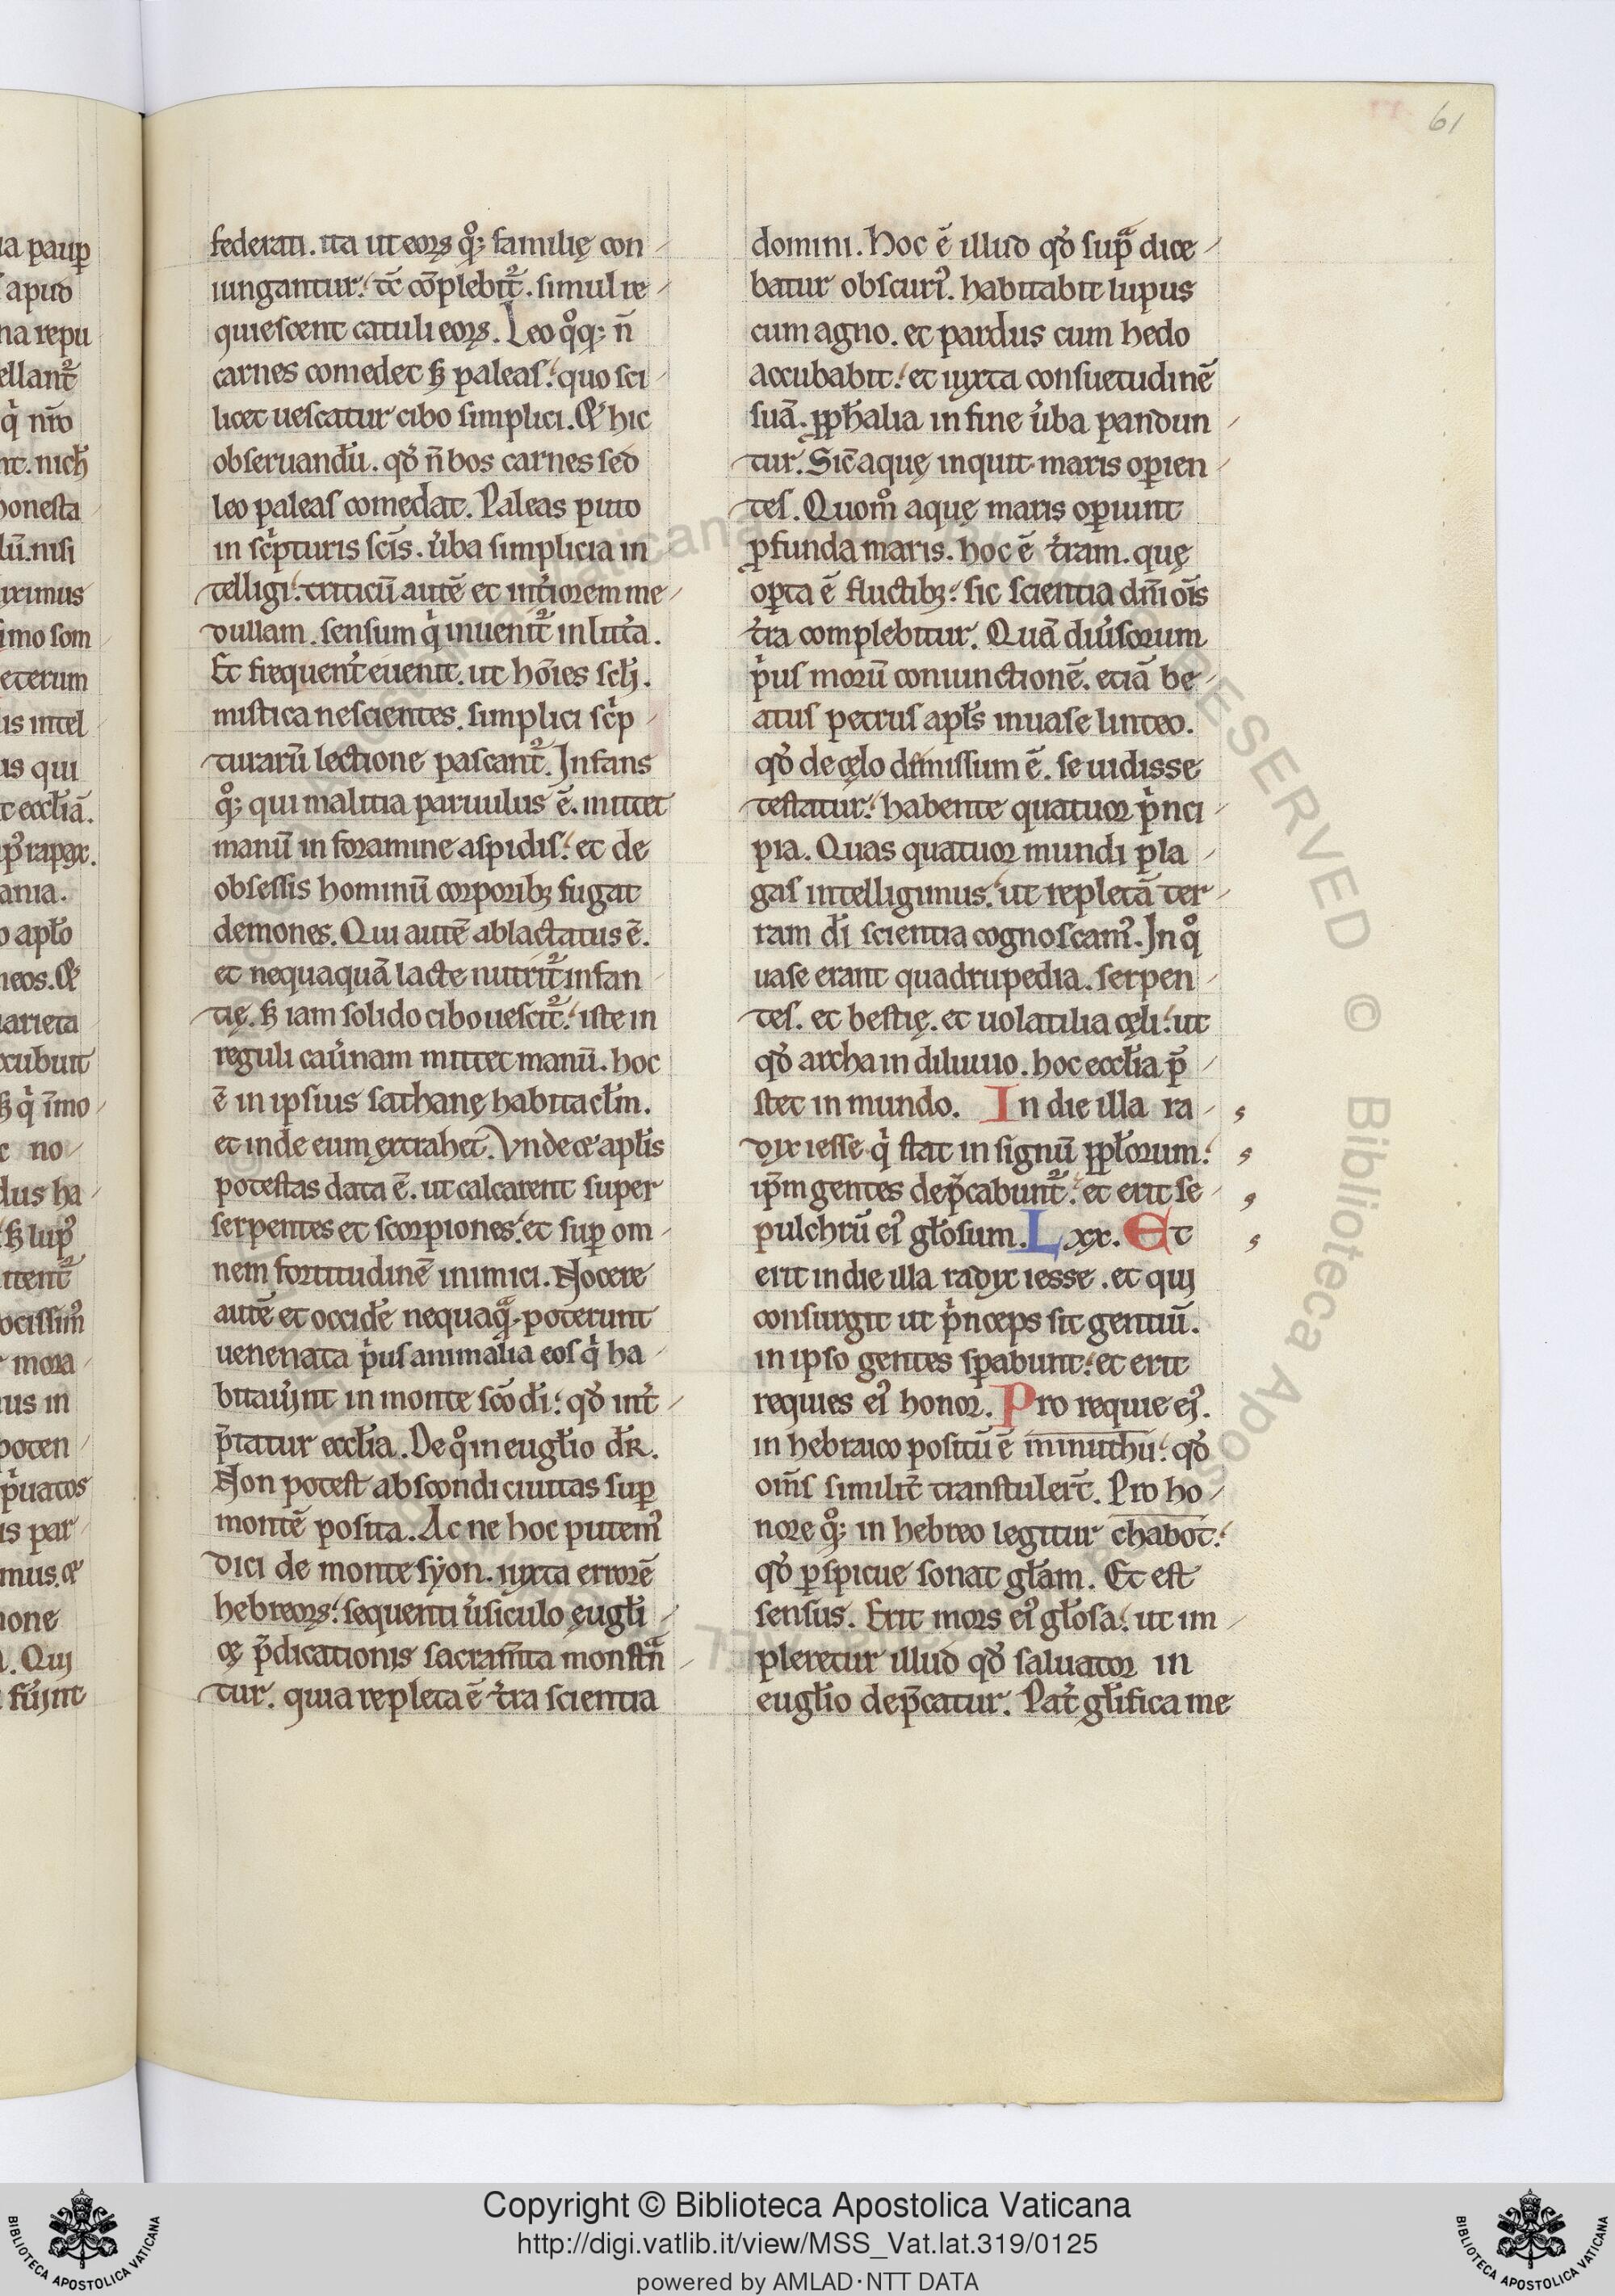 61
federati. ita ut eoꝝ qͦ; familię con-
iungantur. tc̄ cōplebit᷑. simul re-
quiescent catuli eoꝝ. Leo qͦq; n̄
carnes comedet ꝫ paleas. quo sci-
licet uescatur cibo simplici. Et hic
obseruandū. qd̓ n̄ bos carnes sed
leo paleas comedat. Paleas puto
in sc̓pturis scīs. u̓ba simplicia in
telligi. triticū autē et int̓iorem me-
dullam. sensum q̓ inuenit᷑ in litt̓a.
Et frequent̓ euenit. ut hōies sc̄li.
mistica nescientes. simplici sc̓p-
turarū lectione pascant᷑. Infans
qͦ; qui malitia paruulus ē. mittet
manū in foramine aspidis. et de
obsessis hominū corporibꝫ fugat
demones. Qui autē ablactatus ē.
et nequaquā lacte nutrit᷑ infan-
tię. ꝫ iam solido cibo uescit᷑. iste in
reguli cau̓nam mittet manū. hoc
ē in ipsius sathanę habitacl̄m.
et inde eum extrahet. Vnde et apl̄is
potestas data ē. ut calcarent super
serpentes et scorpiones. et suꝑ om-
nem fortitudinē inimici. Nocere
autē et occid̓e nequaqͣ. poterunt
uenenata p̓us animalia eos q̓ ha-
bitau̓int in monte scō dī. qd̓ int̓-
p̄tatur eccl̄ia. De qͦ in eugl̄io dr̄.
Non potest abscondi ciuitas suꝑ
montē posita. Ac ne hoc putem᷒
dici de monte syon. iuxta errorē
hebreoꝝ. sequenti u̓siculo ęugl̄i-
cę p̄dicationis sacram̄ta monstrͣn-
tur. quia repleta ē t̓ra scientia
domini. Hoc ē illud qd̓ supͣ dice-
batur obscuri᷒. habitabit lupus
cum agno. et pardus cum hedo
accubabit. et iuxta consuetudinē
suā. ꝓph̄alia in fine u̓ba pandun-
tur. Sic̄ aquę inquit maris oꝑien-
tes. Quom̊ aquę maris oꝑiunt
ꝓfunda maris. hoc ē t̓ram. quę
oꝑta ē fluctibꝫ. sic scientia dn̄i oīs
t̓ra complebitur. Quā diu̓sorum
p̓us morū coniunctionē. etiā be-
atus petrus apl̄s in uase linteo.
qd̓ de cęlo dimissum ē. se uidisse
testatur. habente quatuor p̓nci-
pia. Quas quatuor mundi pla-
gas intelligimus. ut repletā ter-
ram dī scientia cognoscam᷒. In qͦ
uase erant quadrupedia. serpen-
tes. et bestię. et uolatilia cęli. ut
qd̓ archa in diluuio. hoc eccl̄ia p̄-
stet in mundo. In die illa ra-
dix iesse q̓ stat in signū ppl̄orum.
ip̄m gentes dep̄cabunt᷑. et erit se-
pulchrū ei᷒ gl̄osum. Lxx. Et
erit in die illa radix iesse. et qui
consurgit ut p̓nceps sit gentiū.
in ipso gentes sꝑabunt. et erit
requies ei᷒ honor. Pro requie ei᷒.
in hebraico positū ē minuthu. qd̓
om̄s similit̓ transtulert̄. Pro ho-
nore qͦ; in hebreo legitur chabot.
qd̓ ꝑspicue sonat gl̄am. Et est
sensus. Erit mors ei᷒ gl̄osa. ut im-
pleretur illud qd̓ saluator in
eugl̄io dep̄catur. Pat̓ gl̄ifica me
Copyright © Biblioteca Apostolica Vaticana
http://digi.vatlib.it/view/MSS_Vat.lat.319/0125
powered by AMLAD·NTT DATA
BIBLIOTECA APOSTOLICA VATICANA
BIBLIOTECA APOSTOLICA VATICANA